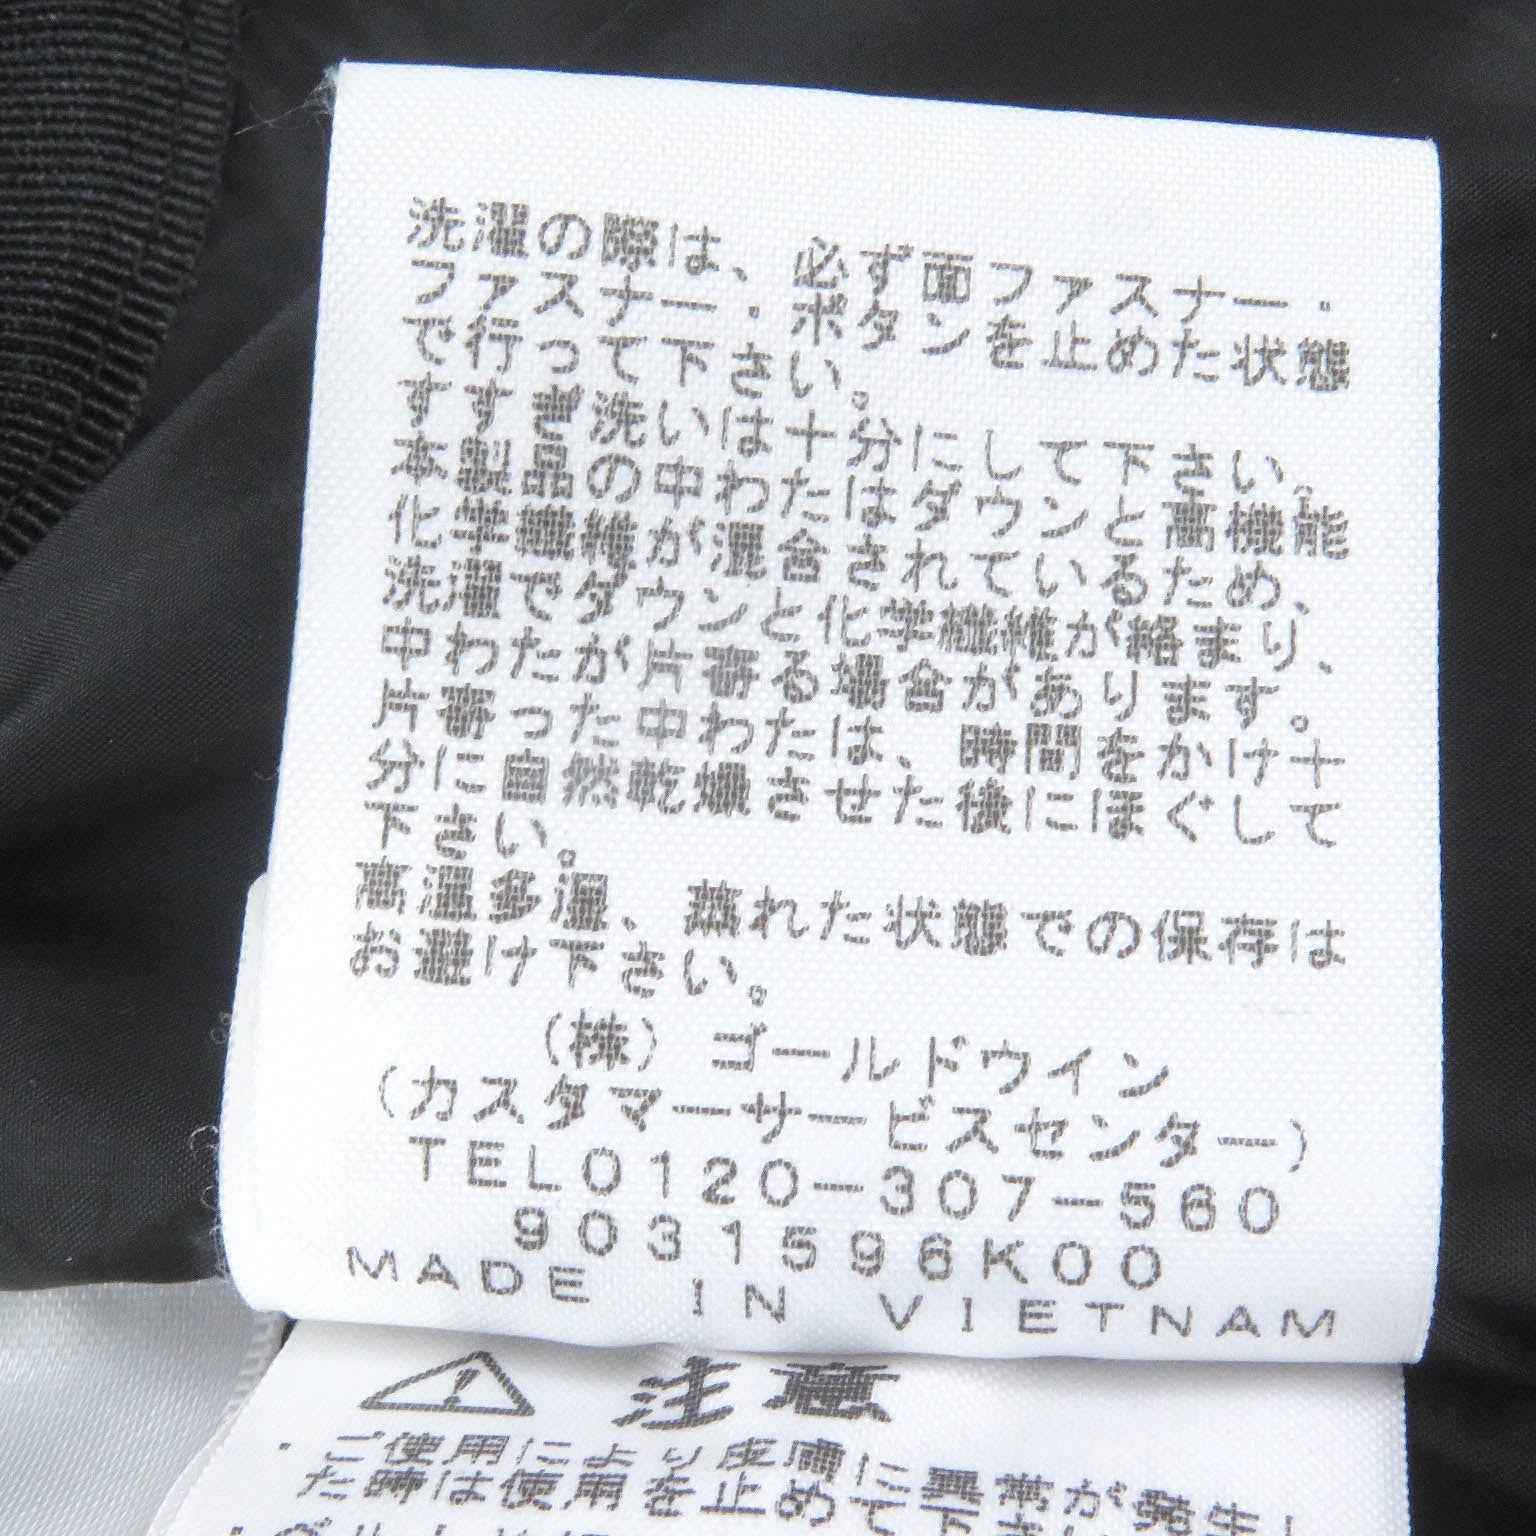 洗濯の際は、必ず面ファスナー・
ファスナー・ボタンを止めた状態
で行って下さい。
すすぎ洗いは十分にして下さい。
本製品の中わたはダウンと高機能
化学繊維が混合されているため、
洗濯でダウンと化学繊維が絡まり、
中わたが片寄る場合があります。
片寄った中わたは、時間をかけ十
分に自然乾燥させた後にほぐして
下さい。
高温多湿、蒸れた状態での保存は
お避け下さい。
(株) ゴールドウイン
(カスタマーサービスセンター)
TEL0120-307-560
9031596K00
MADE IN VIETNAM
注意
・ご使用により皮膚に異常が発生し
た時は使用を止めて下さい